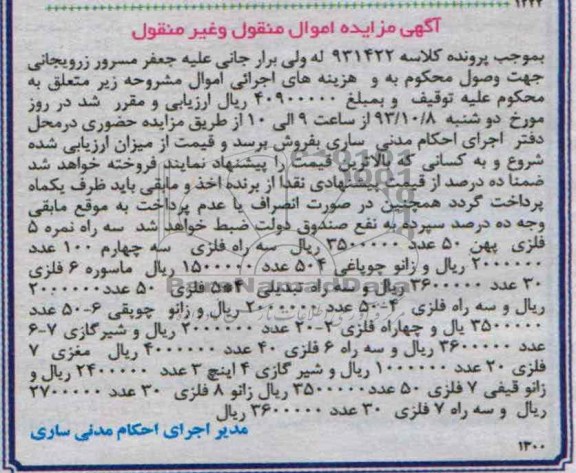 ۱۲۲۲
آگهی مزایده اموال منقول وغیر منقول
بموجب پرونده کلاسه ۹۳۱۴۲۲ له ولی برار جانی علیه جعفر مسرور زرویجانی
جهت وصول محکوم به و هزینه های اجرائی اموال مشروحه زیر متعلق به
محکوم علیه توقیف و بمبلغ ۴۰۹۰۰۰۰۰ ریال ارزیابی و مقرر شد در روز
مورخ دو شنبه ۹۳/۱۰/۸ از ساعت ۹ الی ۱۰ از طریق مزایده حضوری درمحل
دفتر اجرای احکام مدنی ساری بفروش برسد و قیمت از میزان ارزیابی شده
شروع و به کسانی که بالاترین قیمت را پیشنهاد نمایند فروخته خواهد شد
ضمنا ده درصد از قیمت پیشنهادی نقدا از برنده اخذ و مابقی باید ظرف یکماه
پرداخت گردد همچنین در صورت انصراف یا عدم پرداخت به موقع مابقی
وجه ده درصد سپرده به نفع صندوق دولت ضبط خواهد شد سه راه نمره ۵
فلزی پهن ۵۰ عدد ۳۵۰۰۰۰۰ ریال سه راه فلزی سه چهارم ۱۰۰ عدد
۲۰۰۰۰۰۰ ریال و زانو چوپاغی ۴-۵ عدد ۱۵۰۰۰۰۰ ریال ماسوره ۶ فلزی
۳۰ عدد ۳۶۰۰۰۰۰ ریال و سه راه تبدیلی ۴-۵ فلزی ۵۰ عدد ۲۰۰۰۰۰۰
ریال و سه راه فلزی ۴-۵۰ عدد ۲۰۰۰۰۰۰ ریال و زانو چوبقی ۶-۵۰ عدد
۳۵۰۰۰۰۰ یال و چهاراه فلزی ۲-۲۰۰ عدد ۲۰۰۰۰۰۰ ریال و شیرگازی ۷-۶
عدد ۳۶۰۰۰۰۰ ریال و سه راه ۶ فلزی ۴۰ عدد ۴۰۰۰۰۰۰ ریال مغزی ۷
فلزی ۲۰ عدد ۱۰۰۰۰۰۰ ریال و شیر گازی ۴ اینچ ۳ عدد ۲۴۰۰۰۰۰ ریال و
زانو قیفی ۷ فلزی ۵۰ عدد ۳۵۰۰۰۰۰ ریال زانو ۸ فلزی ۳۰ عدد ۲۷۰۰۰۰۰
ریال و سه راه ۷ فلزی ۳۰ عدد ۳۶۰۰۰۰۰ ریال
مدیر اجرای احکام مدنی ساری
۱۳۰۰